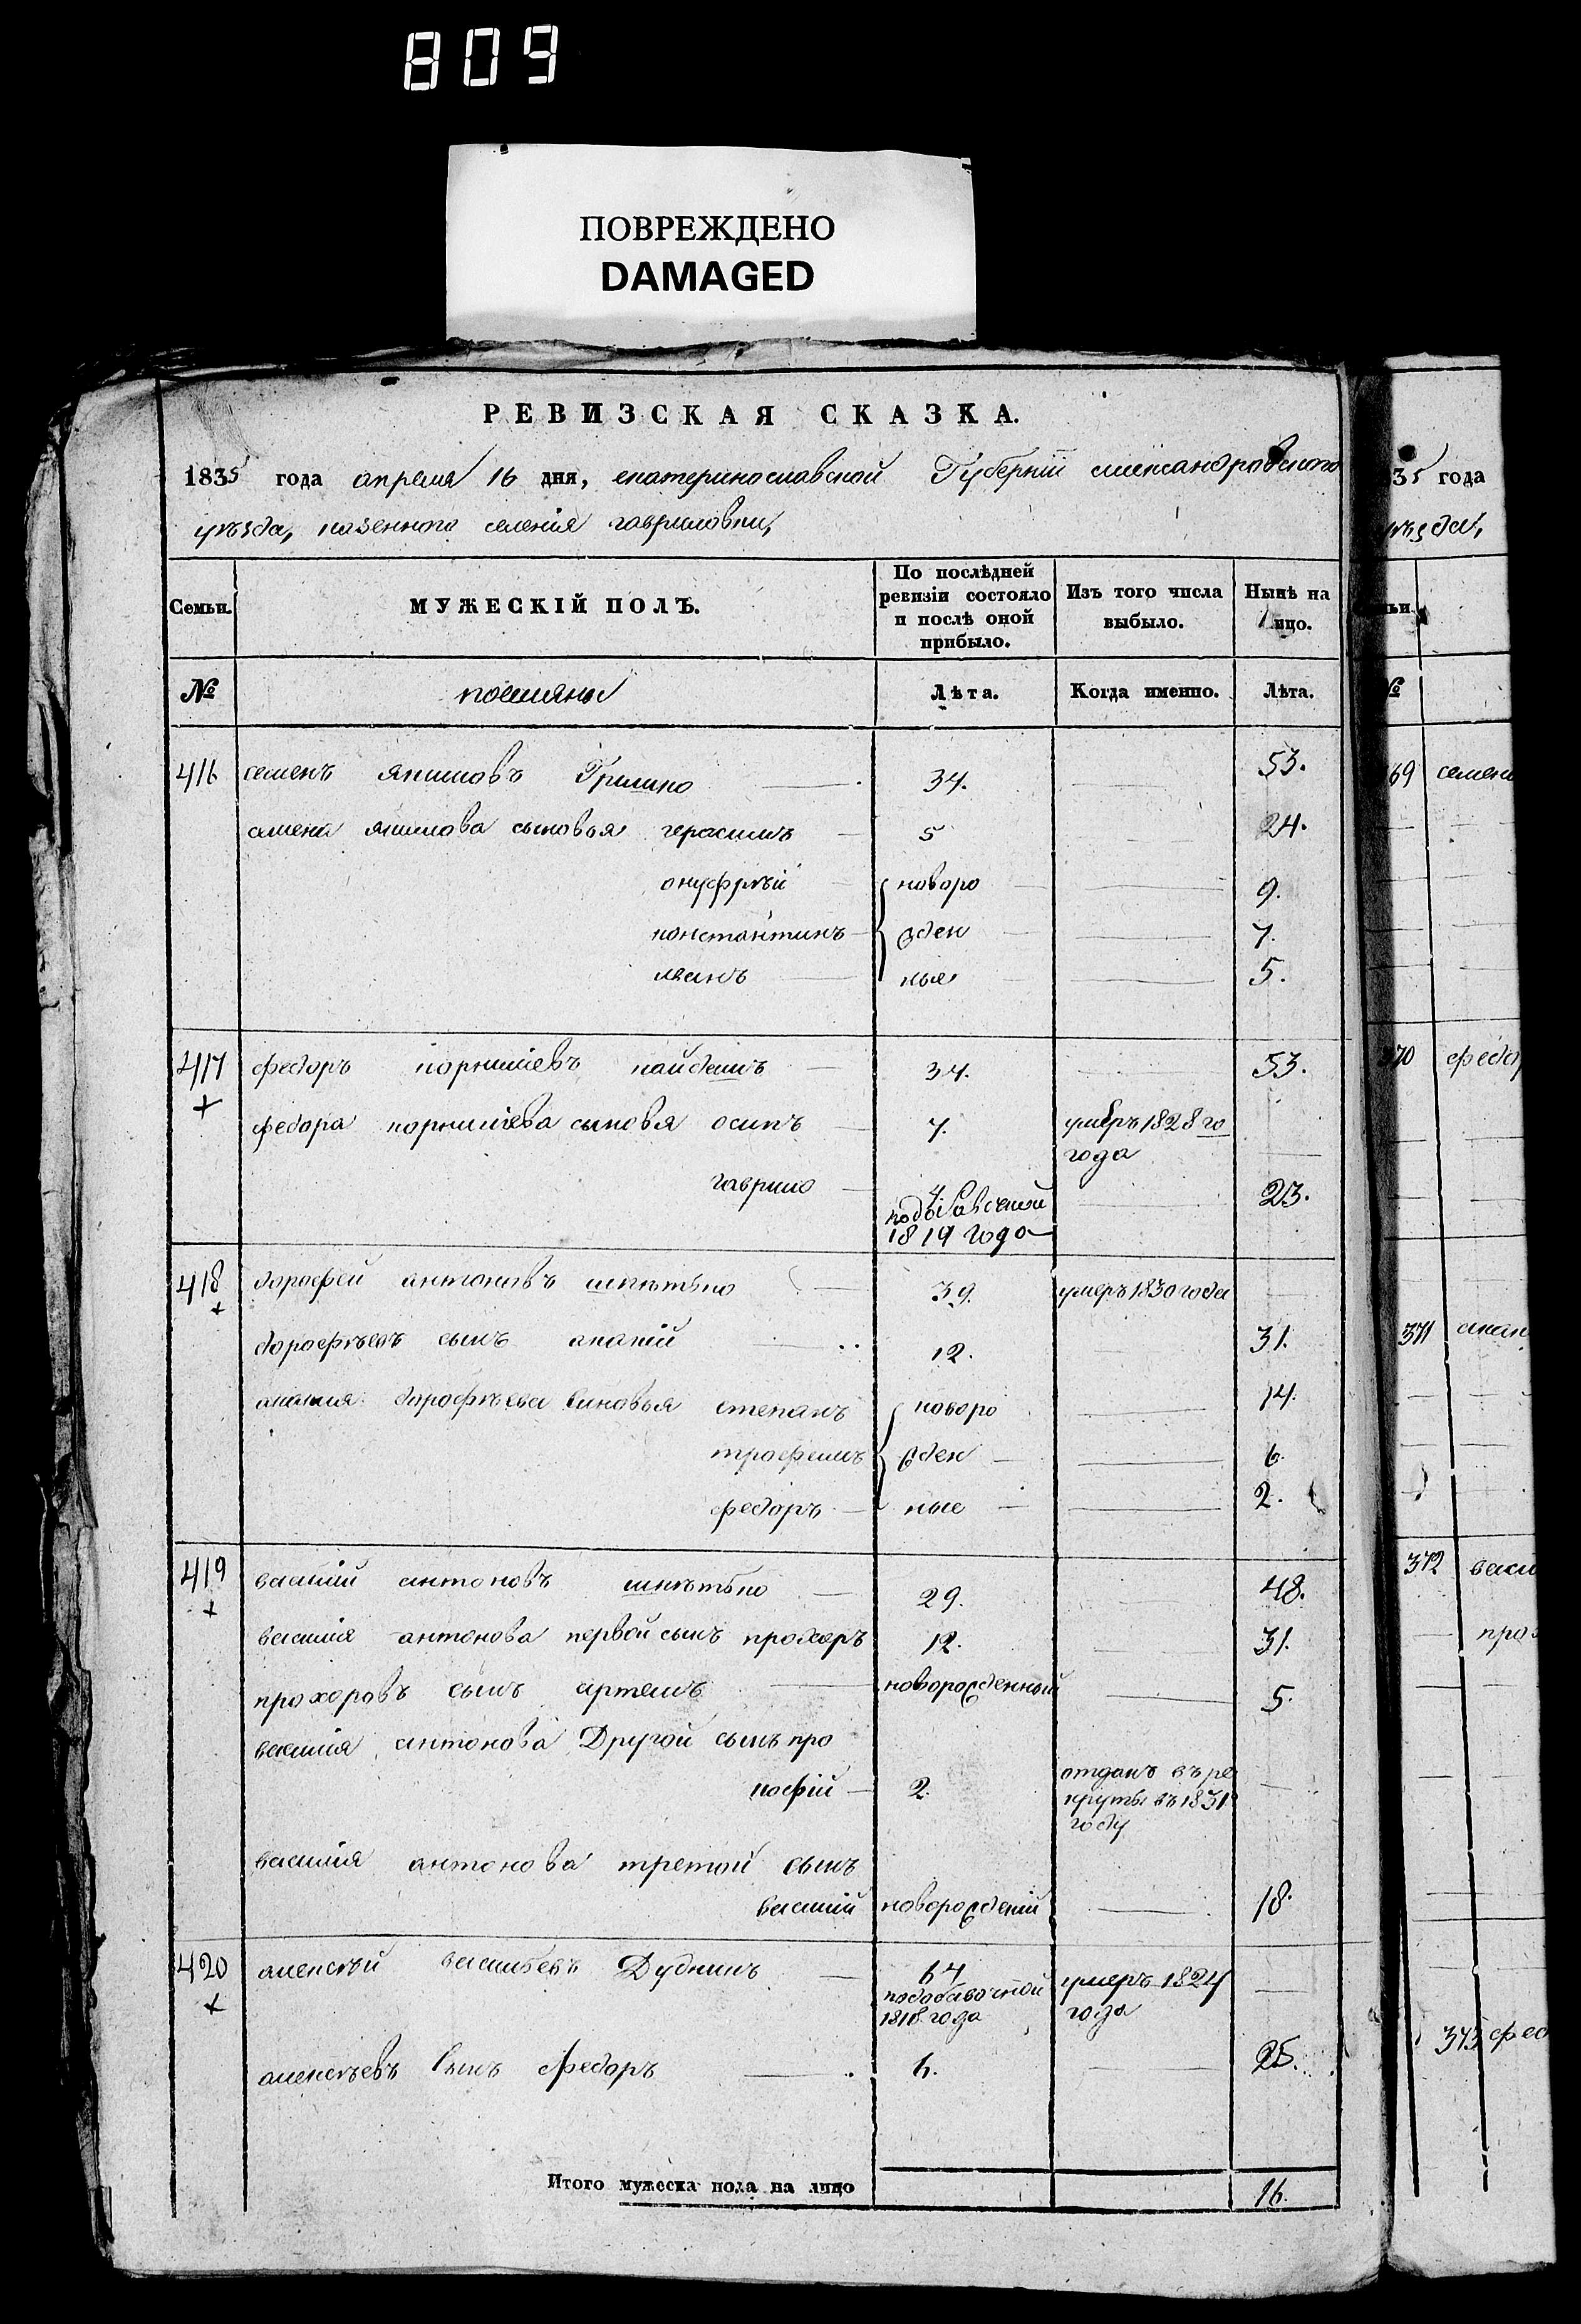 809
ПОВРЕЖДЕНО
DAMAGED
РЕВИЗСКАЯ СКАЗКА.
1835 года апреля 16 дня, екатеринославской Губернїи александровского
уѣзда, казенного селенія гавриловки,
Семьи.
МУЖЕСКІЙ ПОЛЪ.
По послѣдней
ревизіи состояло
и послѣ оной
прибыло.
Изъ того числа
выбыло.
Нынѣ на
лицо.
№
поселяны
Лѣта.
Когда именно.
Лѣта.
416 семенъ якимовъ Гришко 34. 53.
семена якимова сыновья герасимъ 5 24.
онуфрѣй новоро 9.
константинъ жден 7.
иванъ ные 5.
417 федоръ корнѣіевъ найдешъ 34. 53.
федора корниліева сыновя осипъ 7. умеръ 1828 го
года
гаврило 4. 23.
по добавочной
1819 года
418 дорофей антоновъ 39. умеръ 1830 года
дорофѣевъ сынъ ананій 12. 31.
анания дорофѣева синовья степанъ новоро 14.
трофимъ жден 6.
федоръ ные 2.
419 василій антоновъ 29. 48.
василія антонова первой сынъ прохоръ 12. 31.
прохоровъ сынъ артемъ новорожденный 5.
василія антонова Другой сынъ про
кофій 2. отданъ въ ре
круты въ 1831
году
василія антонова третой сынъ
василий новорождений 18.
420 алексѣй васильевъ Дудникъ 64 умеръ 1824
по добавочной года
1818 года
алексѣевъ сынъ федоръ 6. 25.
Итого мужеска пола на лицо 16.
35 года
уѣзда,
№
69 семенъ
370 федор
371 анан
372 васи
прох
373 фед